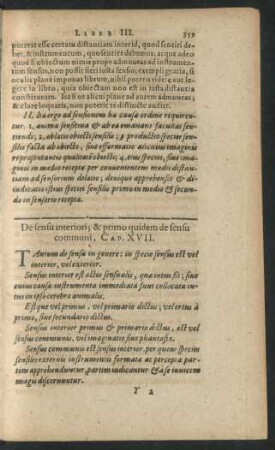 LIBER III. 339
poterat esse certum distantiam interid, quod sentiri de-
bet, & instrumentum, quo sentire debemus; atque adeo
quod si obiectum nimis prope admoueas ad instrumen-
tum sensus, non posse fieri ista sensio, exempli gratia, si
oculis planè imponas librum, non poteris videre aut le-
gere in libro, quia obiectum non est in iusta distantia
ab oculis. Ita si os alicui planè ad aurem admoueat,
& clarè loquatis, non poterit te distinctè audire.
11. Ita ergo ad sensionem ha causa ordine requirun-
tur. 1, anima sensitiua & ab ea emanans facultas sen-
tiendi: 2, oblatio obiecti sensilis: 3 productio speciei sen-
silis facta ab obiecto, siue efformatio alicuius imaginis
repraesentantis qualitatē obiecti; 4, eius speciei, siue imag-
inis in medio recepta per conuenientem medii distan-
tiam ad sensorium delatio; denique apprehensio & di-
iudicatio istius speciei sensilis primo in medio & secun-
do in sensorio recepta.
De sensu interiori, & primo quidem de sensu
communi, CAP. XVII.
TAntum de sensu in genere: in specie sensus est vel
interior, vel exterior.
Sensus interior est actio sensualis, quae intus fit; siue
anima causa instrumenta immediata sunt collocata in-
tus in ipso cerebro animalis.
Estque vel primus, vel primario dictus; vel ortus à
primo, siue secundario dictus.
Sensus interior primus & primario dictus, est vel
sensus communis, vel imaginatio siue phantasia.
Sensus communis est sensus interior, per quem species
sensiles externis instrumentis formata ac percepta par-
tim apprehenduntur, partim iudicantur & à se inuicem
magis discernuntur.
Y 2